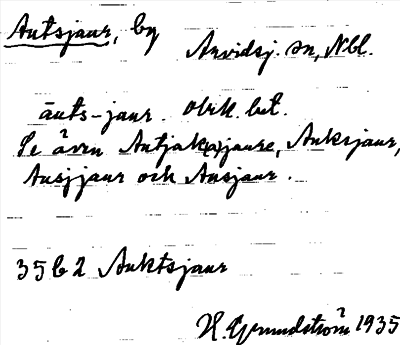 Autsjaur, by
Arvidsj. sn, Nbl.
āuts-jaur. obek. bet.
Se även Autjak(a)jaure, Auksjaur,
Ausjjaur och Ausjaur.
35 b 2 Auktsjaur
H. Grundström 1935